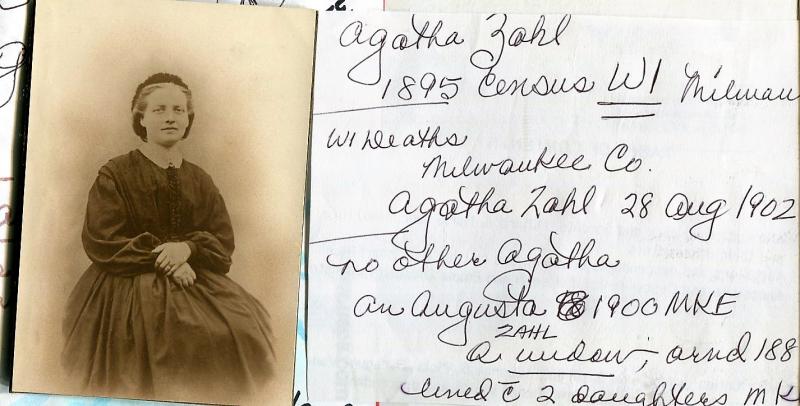 Agatha Zahl
1895 Census WI Milwau
WI Deaths
Milwaukee Co.
Agatha Zahl 28 Aug 1902
no other Agatha
an Augusta 1900 MKE
ZAHL
a widow, arnd 188
lived c̄ 2 daughters MK